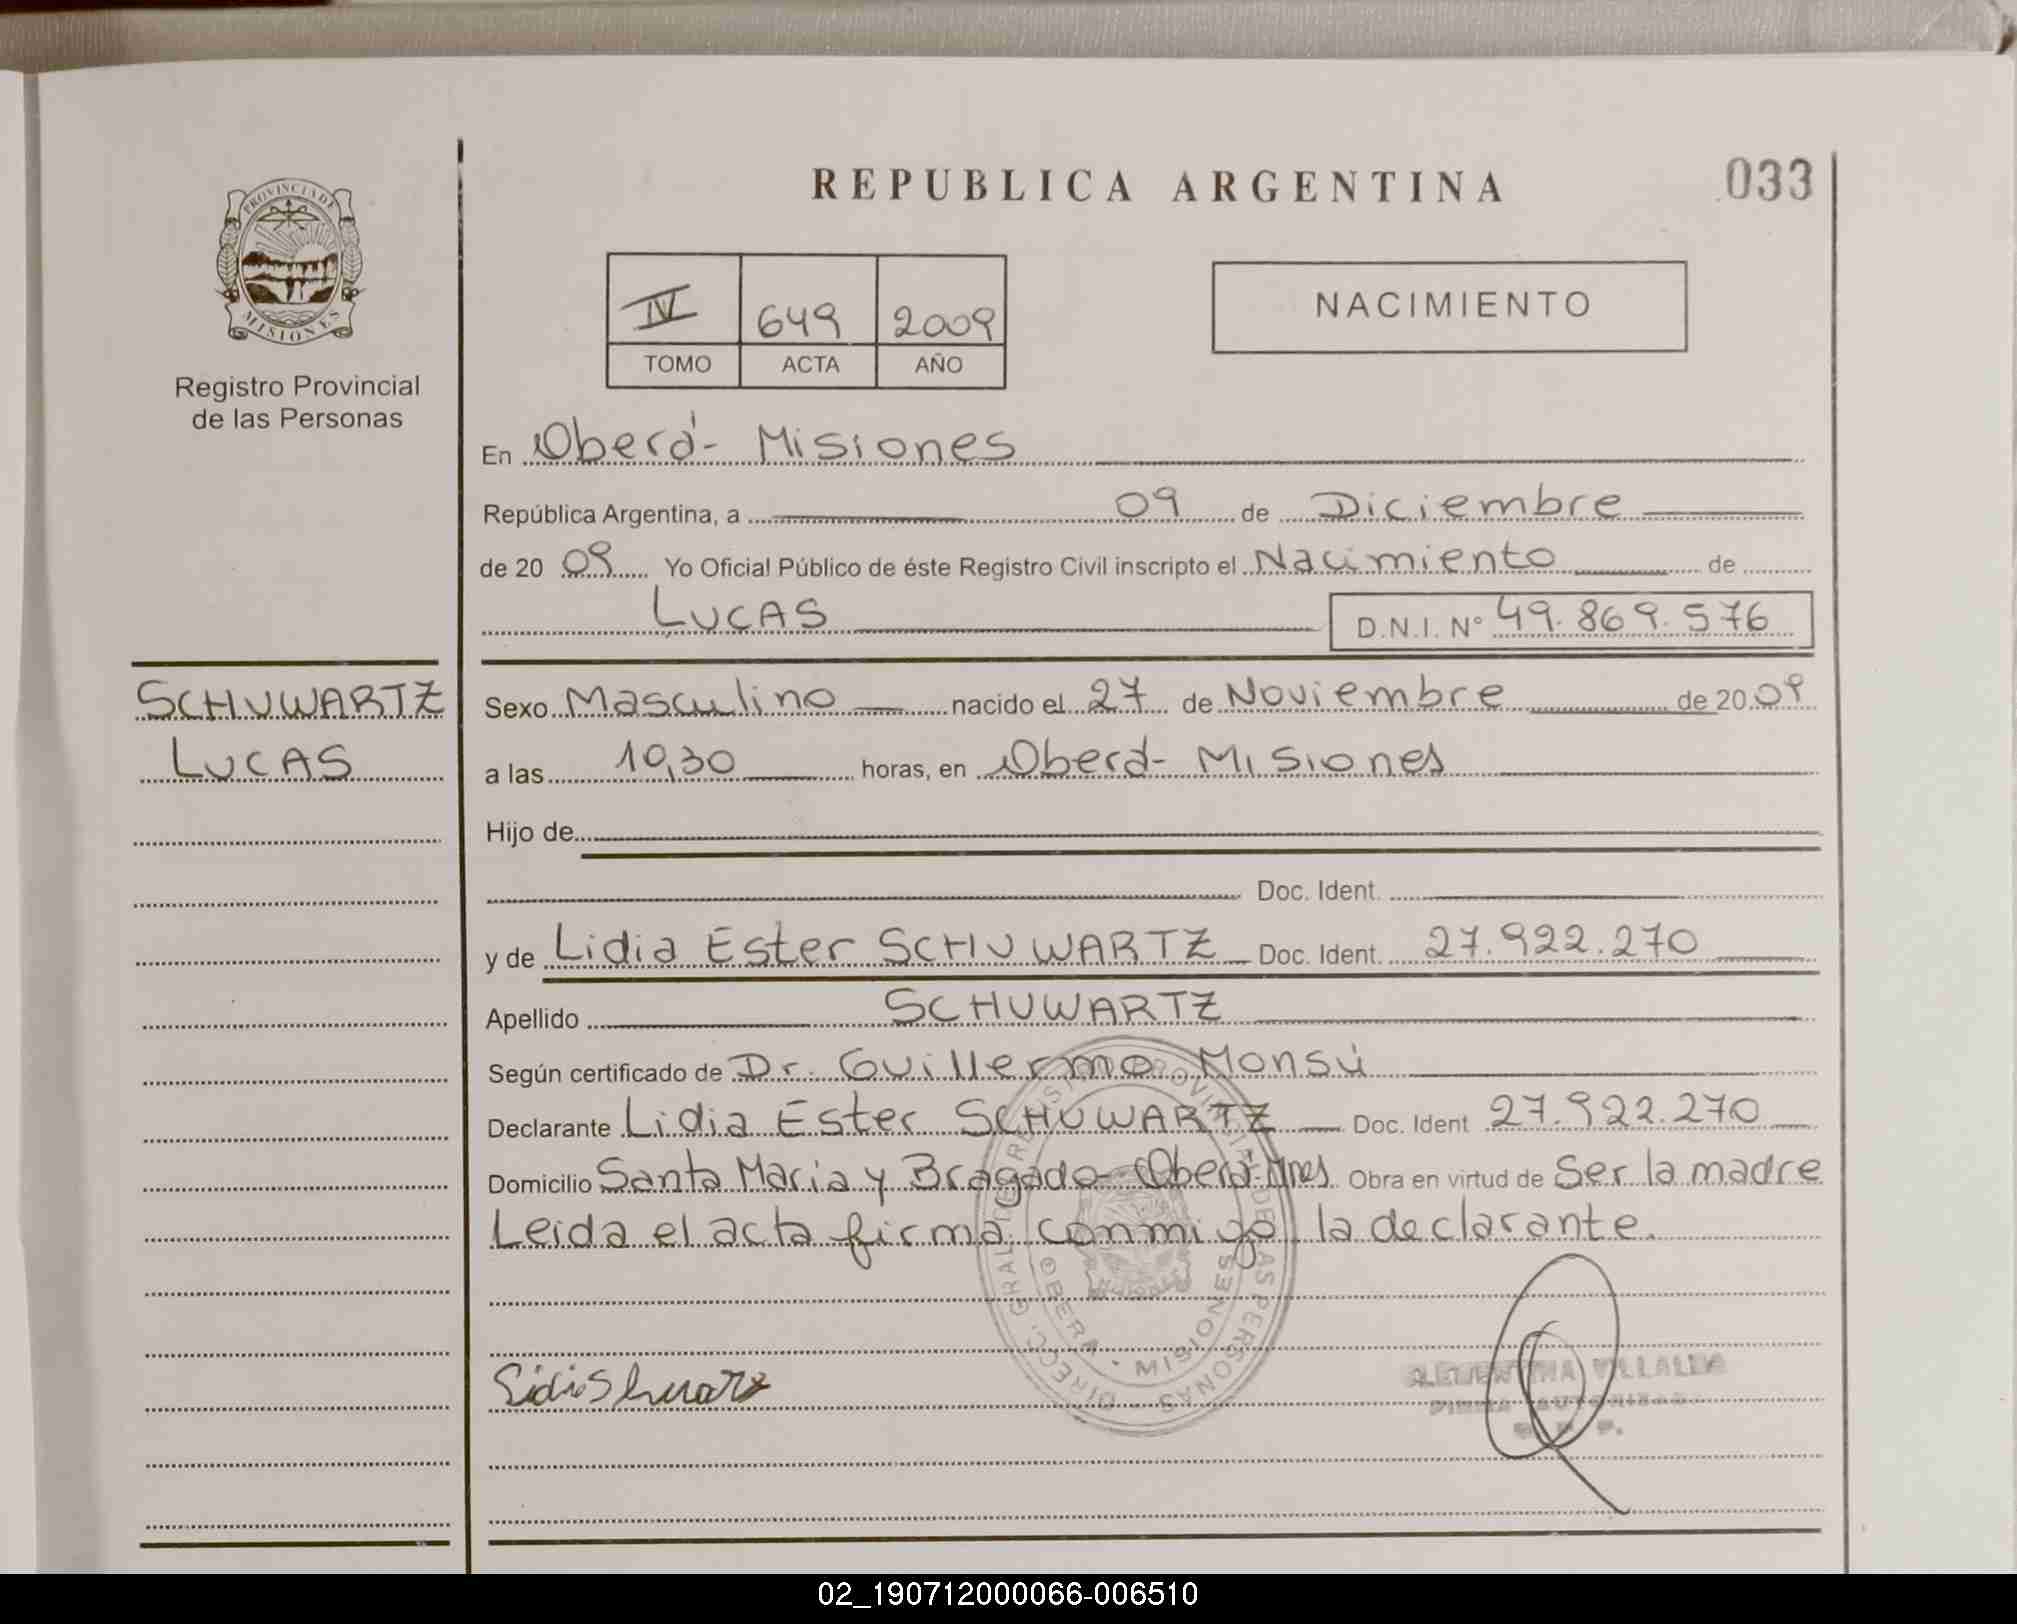 REPUBLICA ARGENTINA
033
PROVINCIA DE
MISIONES
Registro Provincial
de las Personas
IV 649 2009
TOMO ACTA AÑO
NACIMIENTO
En Oberá - Misiones
República Argentina, a 09 de Diciembre
de 20 09 Yo Oficial Público de éste Registro Civil inscripto el Nacimiento de
LUCAS D.N.I. Nº 49.869.576
SCHUWARTZ
LUCAS
Sexo Masculino nacido el 27 de Noviembre de 20 09
a las 10,30 horas, en Oberá - Misiones
Hijo de
Doc. Ident.
y de Lidia Ester SCHUWARTZ Doc. Ident. 27.922.270
Apellido SCHUWARTZ
Según certificado de Dr. Guillermo Monsú
Declarante Lidia Ester SCHUWARTZ Doc. Ident 27.922.270
Domicilio Santa Maria y Bragado - Oberá - Mnes Obra en virtud de Ser la madre
Leida el acta firma conmigo la declarante.
DIRECC. GRAL. DE REGISTRO PROVINCIAL DE LAS PERSONAS
OBERA - MISIONES
VILLALBA
FIRMA AUTORIZADA
02_190712000066-006510